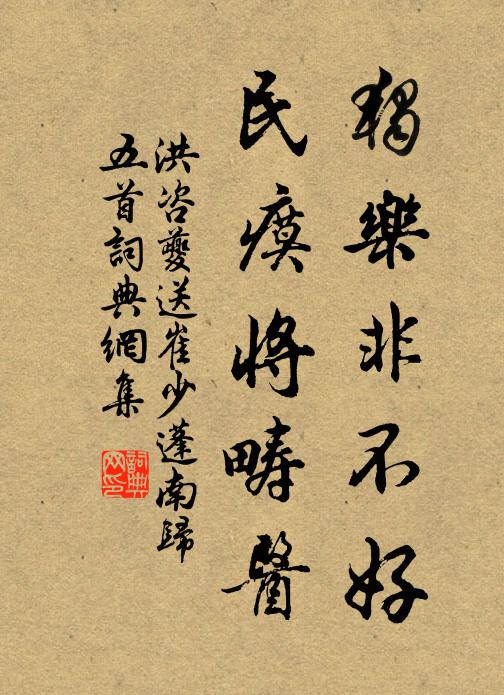 獨樂非不好
民瘼將疇醫
洪咨夔送崔少蓬南歸
五首詞典網集
詞典網印